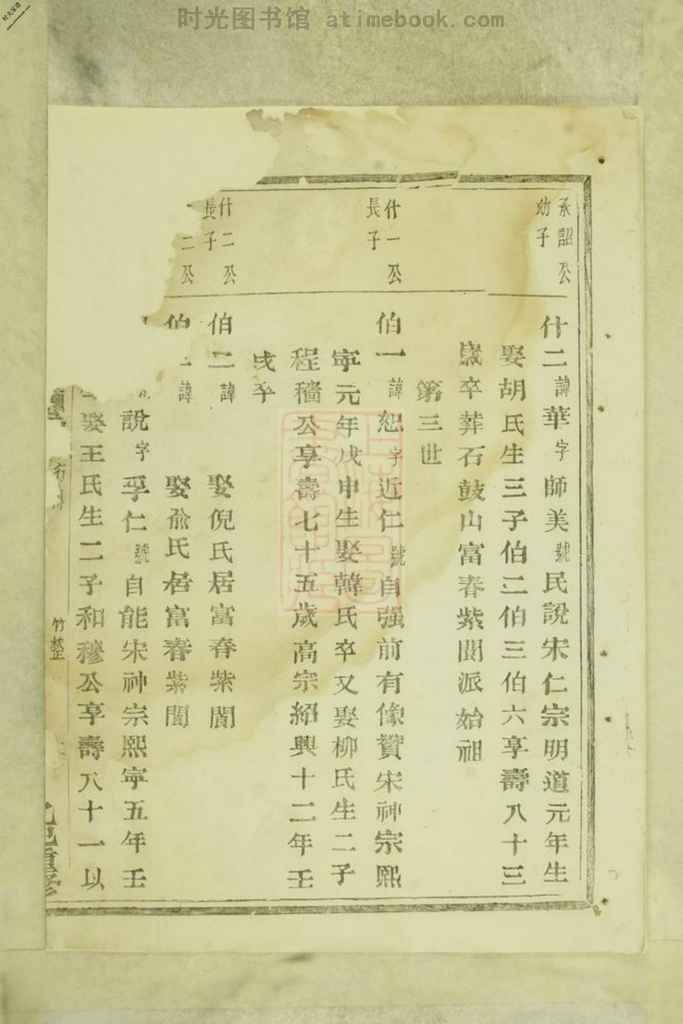 时光图书馆 atimebook.com
承詔公
幼子
什二諱華字師美號民說宋仁宗明道元年生
娶胡氏生三子伯二伯三伯六享壽八十三
歲卒葬石鼓山富春紫閬派始祖
第三世
什一公
長子
伯一諱恕字近仁號自强前有像贊宋神宗熙
寧元年戊申生娶韓氏卒又娶柳氏生二子
程穡公享壽七十五歲高宗紹興十二年壬
戌卒
什二公
長子
伯二諱 娶倪氏居富春紫閬
二公
伯 諱 娶俞氏居富春紫閬
說字孚仁號自能宋神宗熙寧五年壬
娶王氏生二子和穆公享壽八十一以
竹整
重修